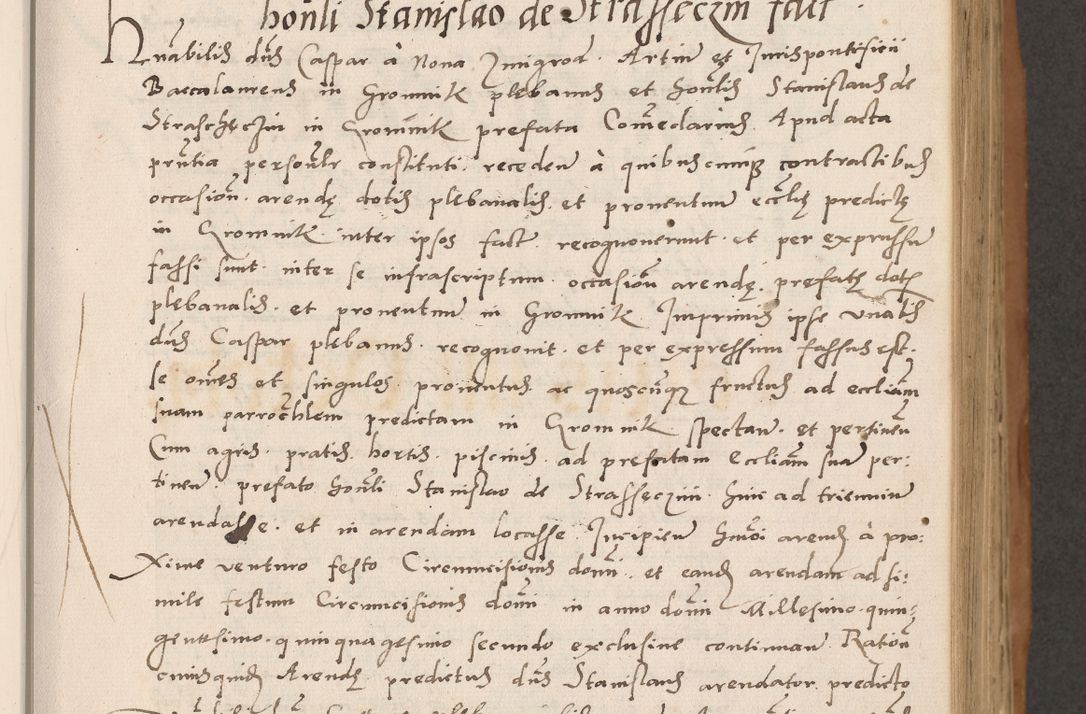 honẽli Stanislao de Strasseczin fact.
Hnẽrabilis dñs Caspar à Nova Zmigrod. Artiũ et Jurispontificii
Baccalaureus in Gromnik plebanus et honẽlis Stanislaus de
Straschęczin in Gromnik prefata Comẽdarius. Apud acta
pñtia personlr constituti. recedeñ à quibuscunq; contractibus
occasioñ. arendę dotis plebanalis. et proventuũ ecclię predictę
in Gromnik. inter ipsos fact. recognoverunt. et per expressũ
fassi sunt. inter se infrascriptum. occasioñ arendę. prefatę dotis
plebanalis. et proventuũ in Gromnik Jmprimis ipse Vnẽabilis
dñs Caspar plebanus. recognovit. et per expressum fassus est.
se omẽs et singulos. proventus. ac quoscũque fructus ad eccliam
suam parrochlem predictam in Gromnik. spectañ. et pertineñ
Cum agris. pratis. hortis. piscinis. ad prefatam Eccliam suã per:
tineñ. prefato honẽli Stanislao de Strasseczin. hinc ad trienniũ
arendasse. et in arendam locasse. Jncipieñ hmõi arendã à pro:
xime venturo festo Circumcisionis domi. et eandẽ arendam ad si:
mile festum Circumcisionis domi in anno domi Millesimo. quin:
gentesimo. quinquagesimo secundo exclusive continuañ. Ratioñ
cuiusquidẽ Arendę predictus dñs Stanislaus arendator. predicto